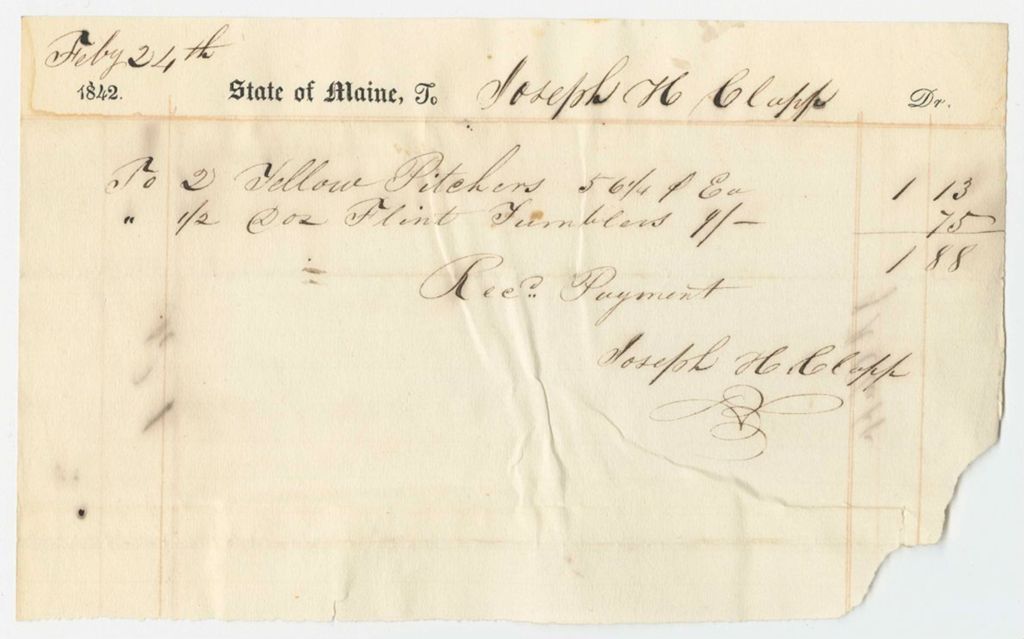 Feby 24th
1842. State of Maine, To Joseph H Clapp Dr.
To 2 Yellow Pitchers 56¼ ¢ Ea 1 13
" 1/2 Doz Flint Tumblers 9/– 75
1 88
Recd. Payment
Joseph H. Clapp